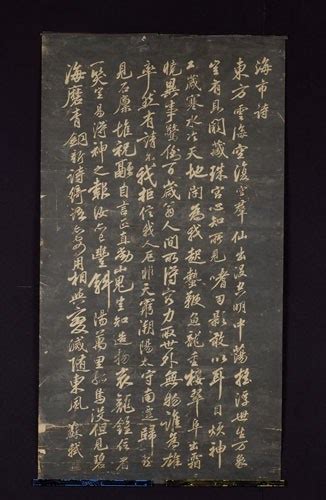 海市詩
東方雲海空復空群仙出沒空明中蕩搖浮世生萬象
豈有貝闕藏珠宮心知所見皆幻影敢以耳目煩神
工歲寒水冷天地閉為我起蟄鞭魚龍重樓翠阜出霜
曉異事驚倒百歲翁人間所得容力取世外無物誰為雄
率然有請不我拒信我人厄非天窮潮陽太守南遷歸喜
見石廩堆祝融自言正直動山鬼豈知造物哀龍鍾信眉
一笑豈易得神之報汝亦已豐斜陽萬里孤鳥沒但見碧
海磨青銅新詩綺語亦安用相與變滅隨東風 蘇軾